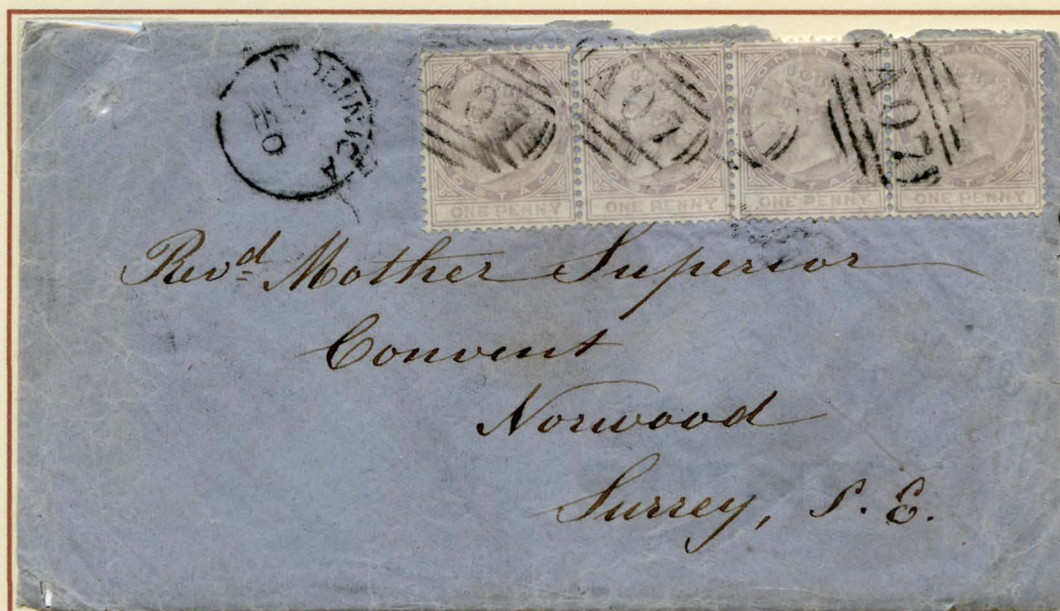 DOMINICA
A07
A07
A07
DOMINICA
POSTAGE
ONE PENNY
ONE PENNY
ONE PENNY
ONE PENNY
Revd Mother Superior
Convent
Norwood
Surrey, S. E.